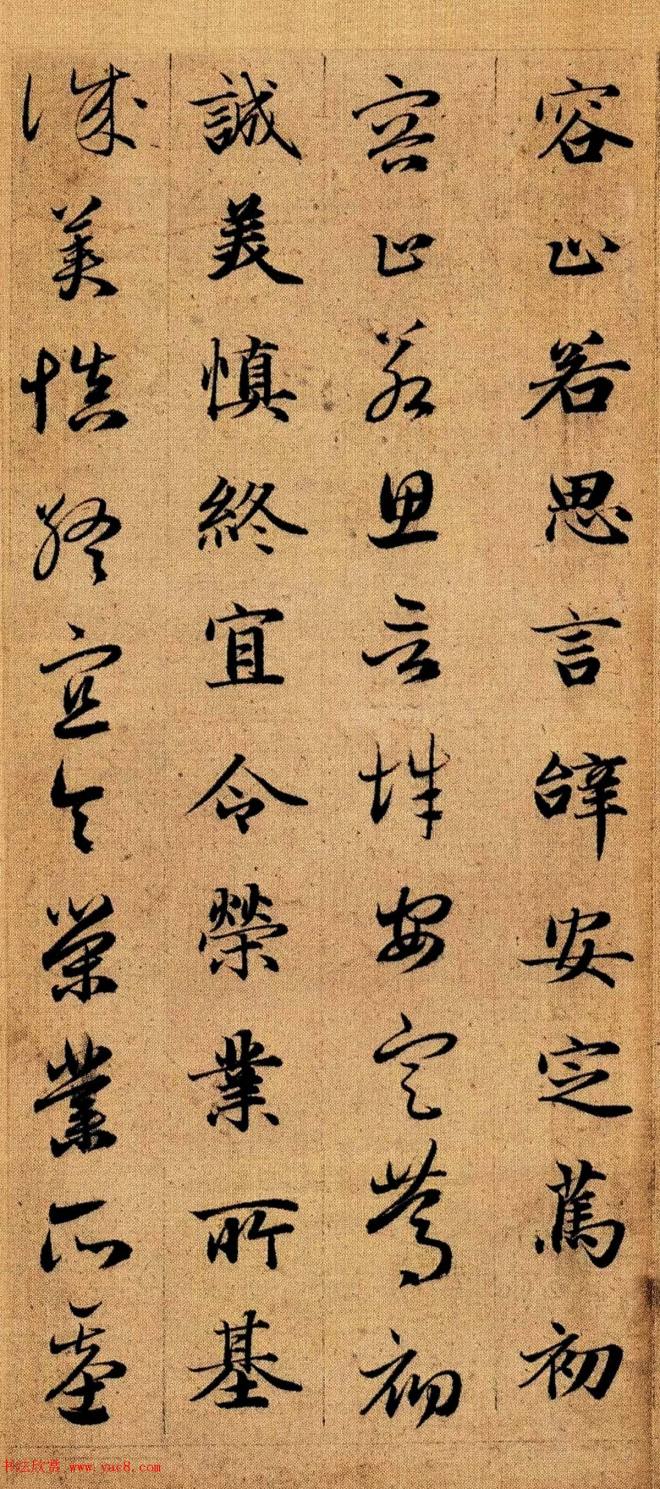 容止若思言辤安定蔫初
容止若思言辭安定篤初
誠美慎終宜令榮業所基
誠美慎終宜令榮業所基
书法欣赏 www.yac8.com